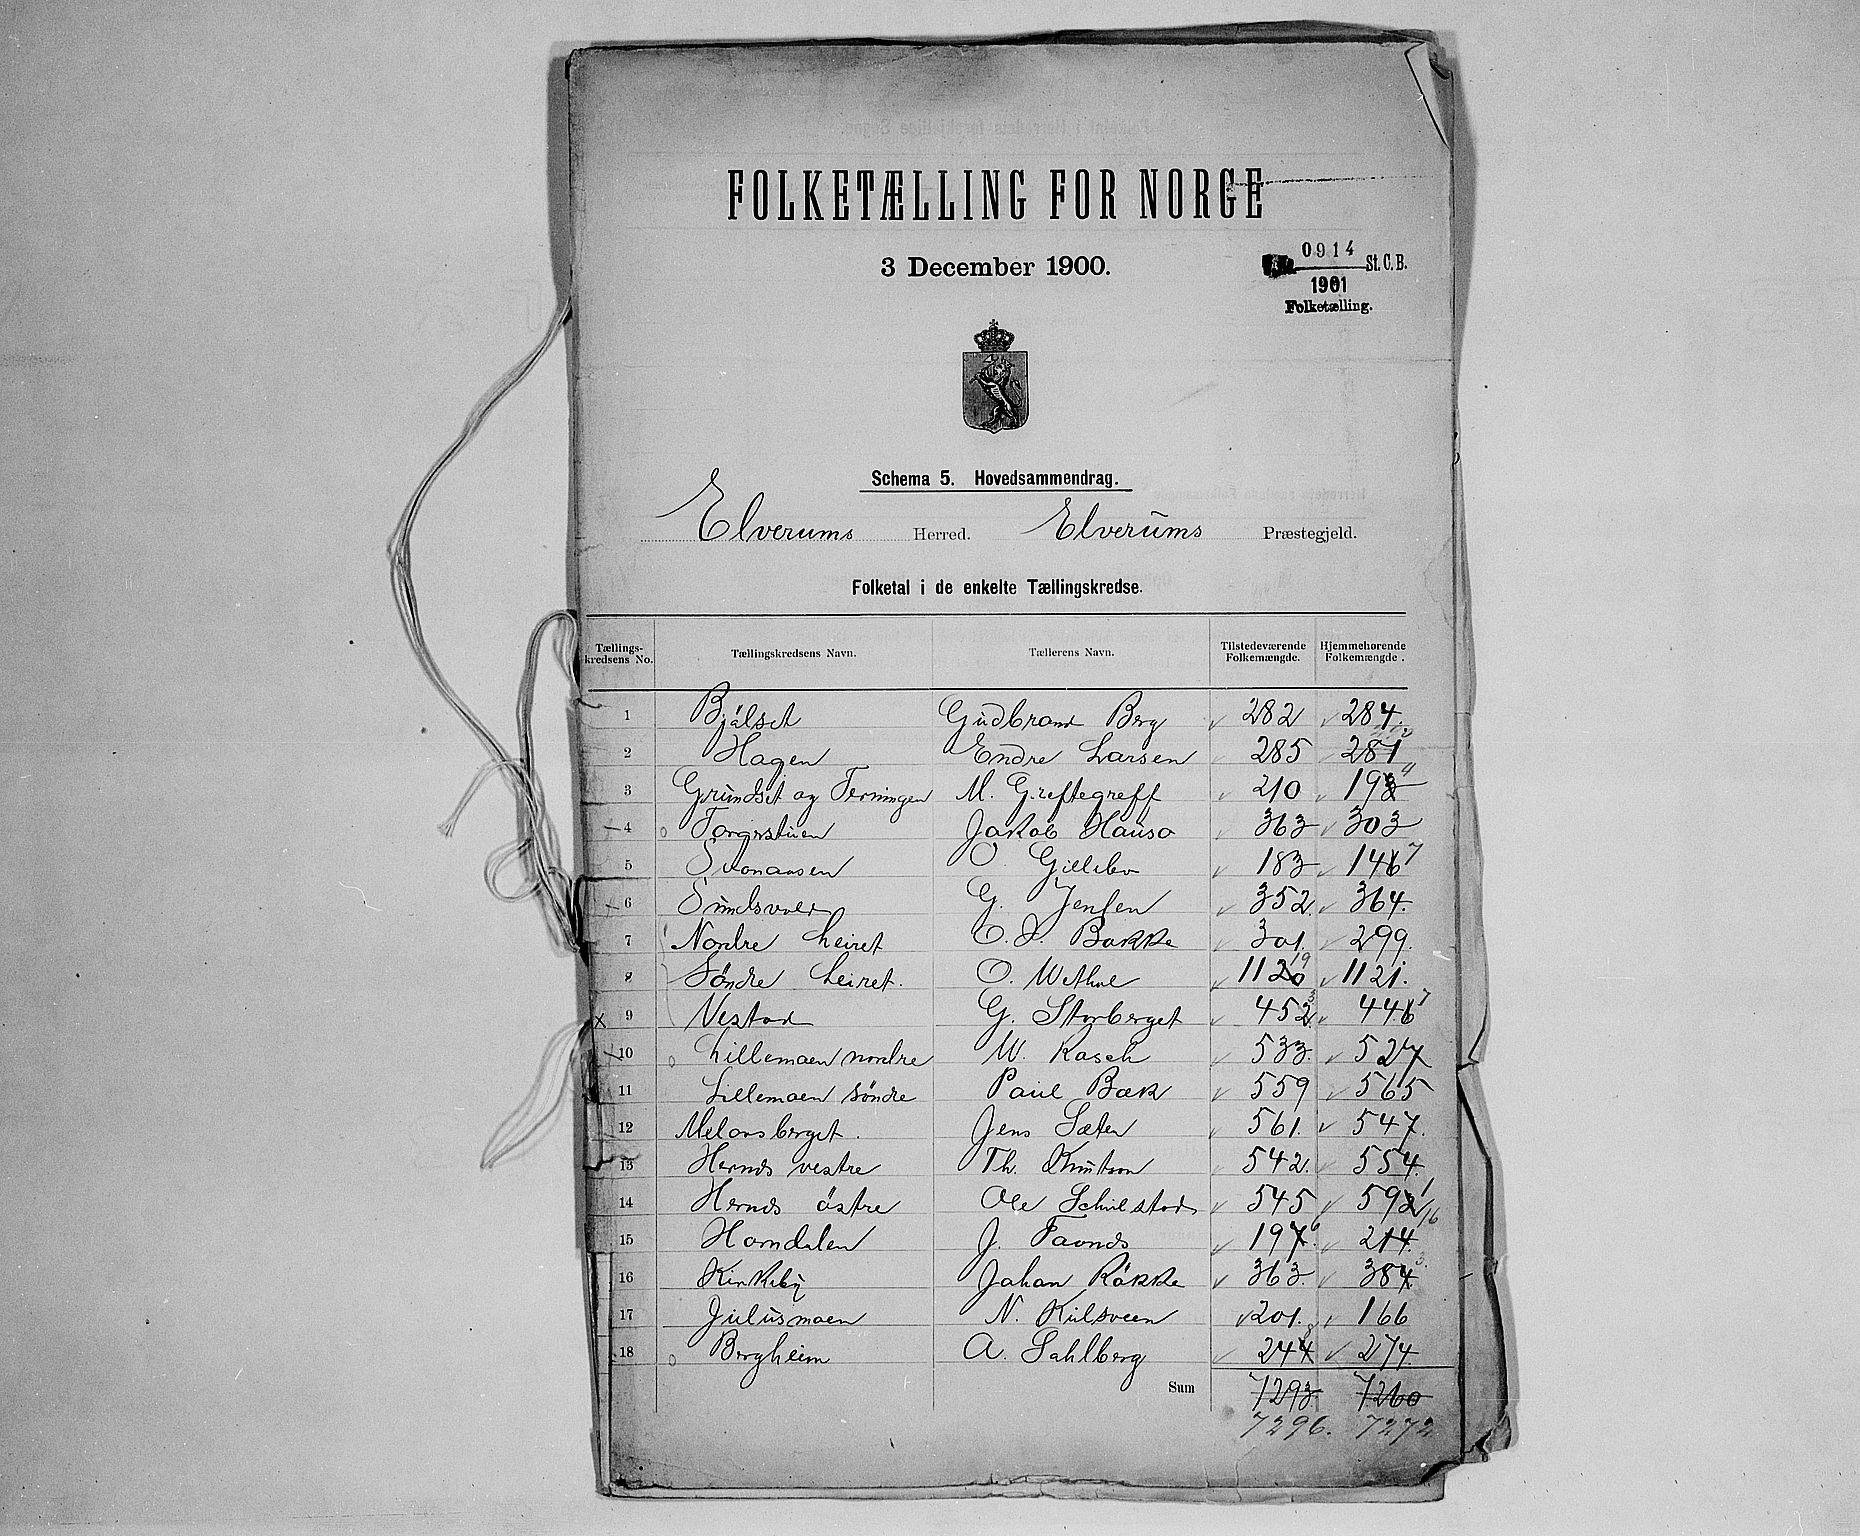 FOLKETÆLLING FOR NORGE
3 December 1900.
0914 St. C. B.
1901
Folketælling.
Schema 5. Hovedsammendrag.
Elverums Herred. Elverums Præstegjeld.
Folketal i de enkelte Tællingskredse.
Tællings-kredsens No. Tællingskredsens Navn. Tællerens Navn. Tilstedeværende Folkemængde. Hjemmehørende Folkemængde.
1 Bjölset Gudbrand Berg 282 284.
2 Hagen Endre Larsen 285 281
3 Grundset og Terningen M. Greftegreff 210 198 4
4 Torgerstuen Jakob Hauso 363 303
5 O. 183 146 7
6 Sundsvold G. Jensen 352. 364.
7 Nordre Leiret O. J. Bakke 301. 299.
8 Söndre Leiret. O. 1120 19 1121.
9 Vestad G. Storberget 452 3 446 7
10 Lillemoen nordre W. Rasch 533. 527
11 Lillemoen söndre Paul Bæk 559 565
12 Melaasberget. Jens Sæter 561. 547.
13 Hernæs vestre Th. Knutson 542. 554.
14 Hernæs östre Ole 545 592 1
15 Horndalen J. 197 6 214. 16
16 Kirkeby Johan Kökke 363. 384 3.
17 Julusmoen N. Kulsveen 201. 166
18 Bergheim A. Sahlberg 244 8 274.
Sum 7293. 7260
7296. 7272